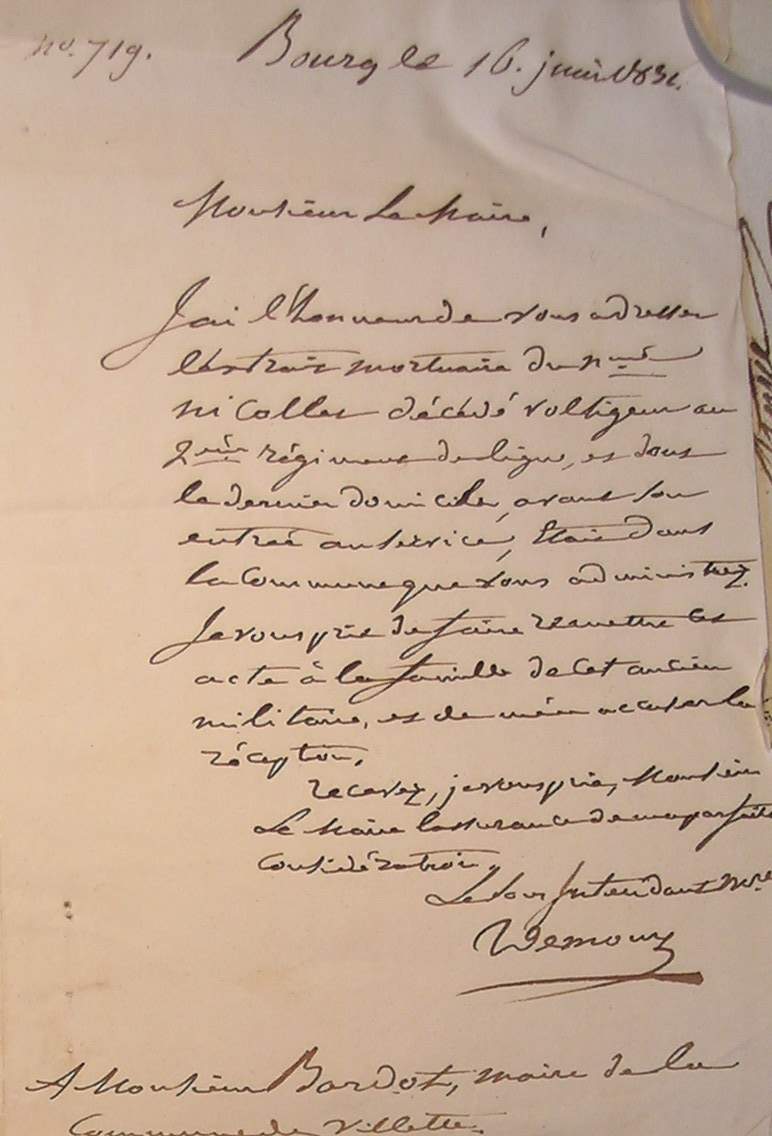 no. 719. Bourg le 16. juin 1831.
Monsieur Le Maire,
J'ai l'honneur de vous adresser
l'extrait mortuaire du n.mé
Nicollet décédé voltigeur au
2ème régiment de ligne, et dont
le dernier domicile, avant son
entrée au service, Etait dans
la Commune que vous administrez.
Je vous prie de faire remettre cet
acte à la famille de Cet ancien
militaire, et de m'en accuser la
réception.
recevez, je vous prie, Monsieur
Le Maire l'assurance de ma parfaite
Considération.
Le Sous Intendant M.re
A Monsieur Bardot, maire de la
Commune de Villette.